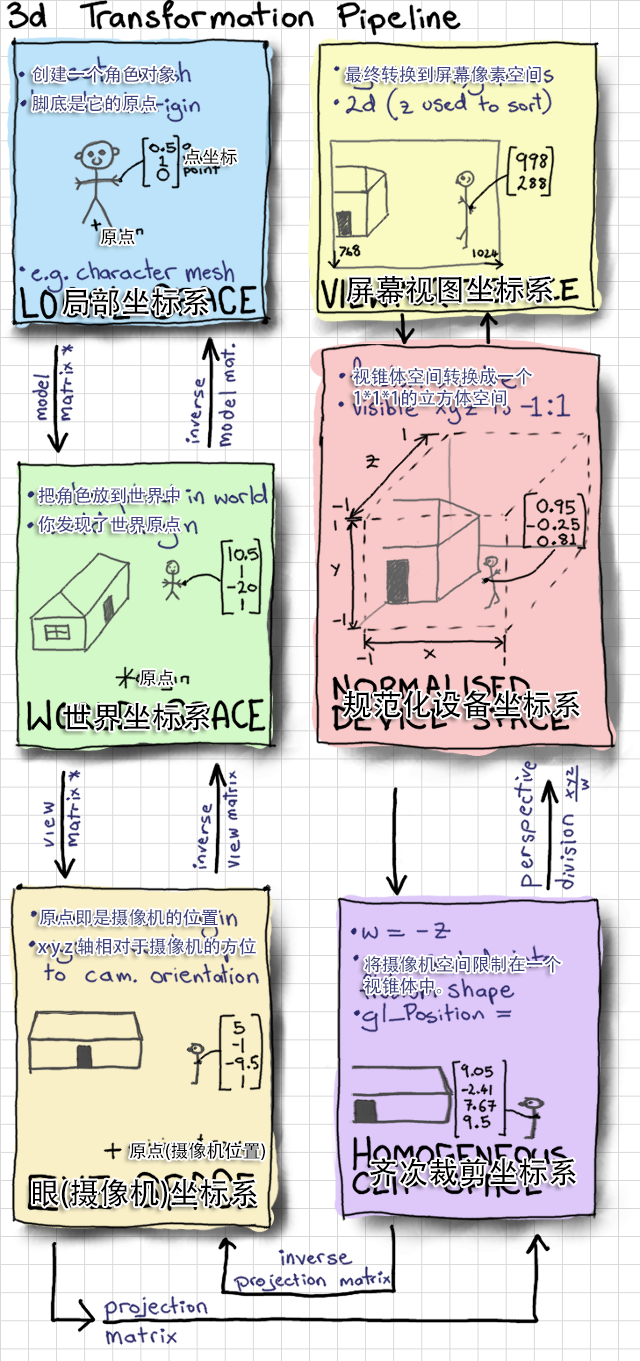 3d Transformation Pipeline
• 创建一个角色对象
• 脚底是它的原点
0.5
1
0
点坐标
point
原点
• e.g. character mesh
局部坐标系
model
matrix *
inverse
model mat.
• 把角色放到世界中 in world
• 你发现了世界原点
10.5
1
-20
1
原点
世界坐标系
view
matrix *
inverse
view matrix
• 原点即是摄像机的位置
• xyz轴相对于摄像机的方位
to cam. orientation
5
-1
-9.5
1
+ 原点(摄像机位置)
眼(摄像机)坐标系
projection
matrix
inverse
projection matrix
• 最终转换到屏幕像素空间
• 2d (z used to sort)
998
288
768
1024
屏幕视图坐标系
• 视锥体空间转换成一个
1*1*1的立方体空间
• visible xyz to -1:1
1
z
-1
1
y
-1
-1
x
1
0.95
-0.25
0.81
NORMALISED
DEVICE SPACE
规范化设备坐标系
perspective
division xyz/w
• w = -z
将摄像机空间限制在一个
视锥体中。
shape
• gl_Position =
9.05
-2.41
7.67
9.5
HOMOGENEOUS
CLIP SPACE
齐次裁剪坐标系